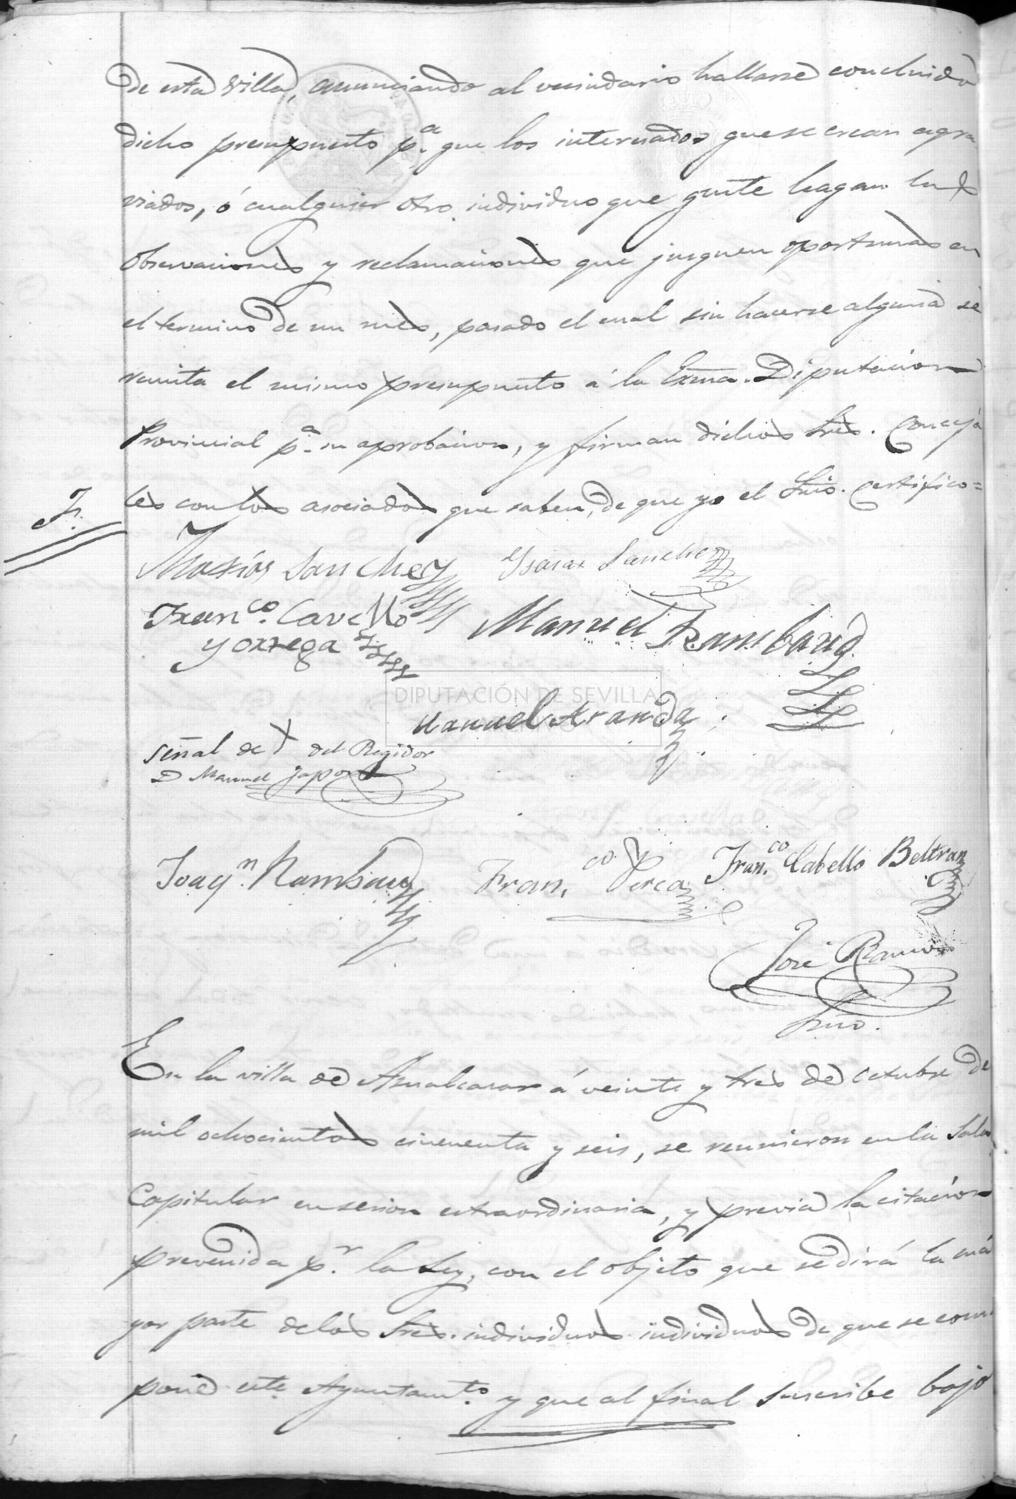 de esta Villa, anunciando al vecindario hallarse concluido
dicho presupuesto p.ª que los interesados que se crean agra
viados, ó cualquier otro individuo que guste hagan las
observaciones y reclamaciones que juzguen oportunas en
el termino de un mes, pasado el cual sin hacerse alguna se
remita el mismo presupuesto á la Exma. Diputacion
Provincial p.ª su aprobacion, y firman dichos Sres. Conceja
les con los asociados que saben, de que yo el Srio. certifico=
F.
Matias Sanchez
Isaias Sanchez
Fran.co Cavello
y orrega
Manuel Rambaud
DIPUTACIÓN DE SEVILLA
Manuel Aranda
señal de X del Regidor
D Manuel Japon
Joaq.n Rambaud
Fran.co Perea
Fran.co Cabello Beltran
José Ramos
Srio.
En la villa de Aznalcazar á veinte y tres de octubre de
mil ochocientos cincuenta y seis, se reunieron en la Sala
Capitular en sesion estraordinaria, y previa la citacion
prevenida p.r la Ley, con el objeto que se dirá la ma
yor parte de los Sres. individuos individuos de que se com
pone este Ayuntam.to y que al final suscribe bajo